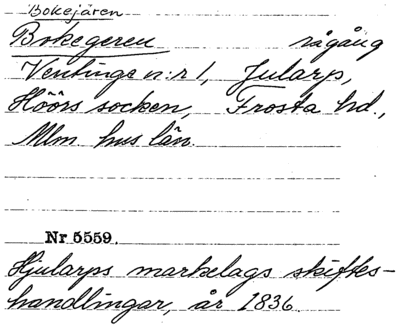 Bokejären
Bokegeren rågång
Ventinge n:r 1, Jularp,
Höörs socken, Frosta hd.,
Mlm. hus län.
Nr 5559.
Hjularps markelags skiftes-
handlingar, år 1836.